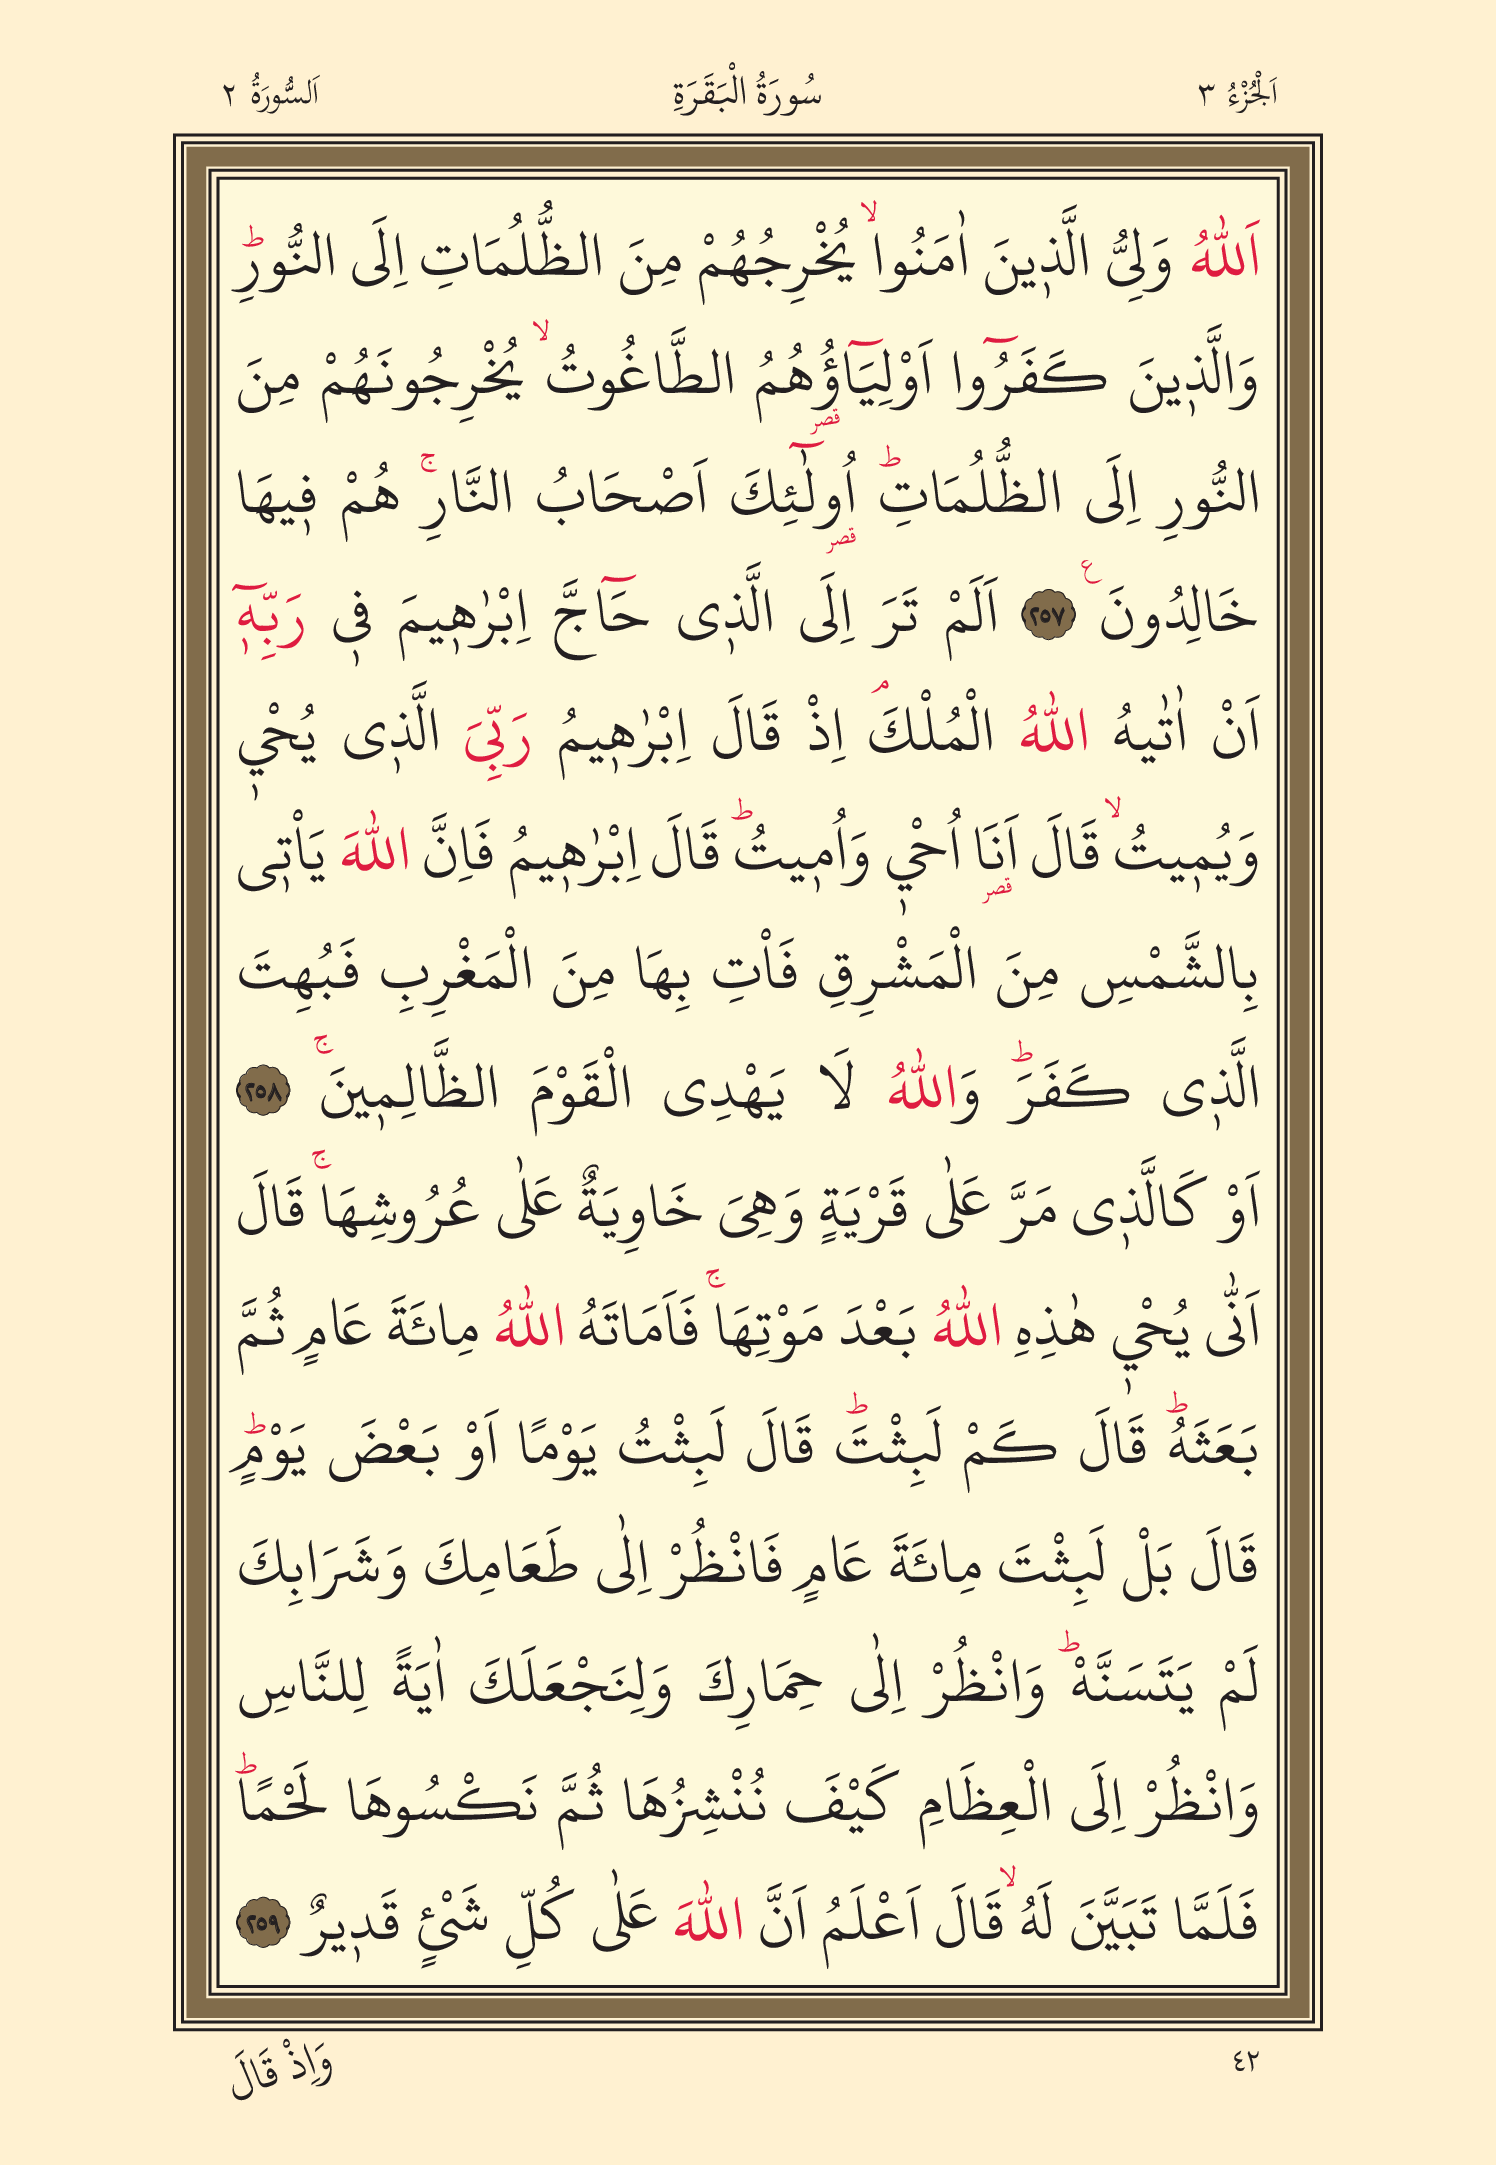 اَلْجُزْءُ ٣ سُورَةُ الْبَقَرَةِ اَلسُّورَةُ ٢
اَللّٰهُ وَلِىُّ الَّذ۪ينَ اٰمَنُواۙ يُخْرِجُهُمْ مِنَ الظُّلُمَاتِ اِلَى النُّورِۜ
وَالَّذ۪ينَ كَفَرُٓوا اَوْلِيَٓاؤُ۬هُمُ الطَّاغُوتُۙ يُخْرِجُونَهُمْ مِنَ
قصر
النُّورِ اِلَى الظُّلُمَاتِۜ اُو۬لٰٓئِكَ اَصْحَابُ النَّارِۚ هُمْ ف۪يهَا
قصر
خَالِدُونَ۟ ﴿٢٥٧﴾ اَلَمْ تَرَ اِلَى الَّذ۪ى حَٓاجَّ اِبْرٰه۪يمَ ف۪ى رَبِّه۪ٓ
اَنْ اٰتٰيهُ اللّٰهُ الْمُلْكَۢ اِذْ قَالَ اِبْرٰه۪يمُ رَبِّىَ الَّذ۪ى يُحْي۪
وَيُم۪يتُۙ قَالَ اَنَا۬ اُحْي۪ وَاُم۪يتُۜ قَالَ اِبْرٰه۪يمُ فَاِنَّ اللّٰهَ يَاْت۪ى
قصر
بِالشَّمْسِ مِنَ الْمَشْرِقِ فَاْتِ بِهَا مِنَ الْمَغْرِبِ فَبُهِتَ
الَّذ۪ى كَفَرَۜ وَاللّٰهُ لَا يَهْدِى الْقَوْمَ الظَّالِم۪ينَۚ ﴿٢٥٨﴾
اَوْ كَالَّذ۪ى مَرَّ عَلٰى قَرْيَةٍ وَهِىَ خَاوِيَةٌ عَلٰى عُرُوشِهَاۚ قَالَ
اَنّٰى يُحْي۪ هٰذِهِ اللّٰهُ بَعْدَ مَوْتِهَاۚ فَاَمَاتَهُ اللّٰهُ مِائَةَ عَامٍ ثُمَّ
بَعَثَهُۜ قَالَ كَمْ لَبِثْتَۜ قَالَ لَبِثْتُ يَوْمًا اَوْ بَعْضَ يَوْمٍۜ
قَالَ بَلْ لَبِثْتَ مِائَةَ عَامٍ فَانْظُرْ اِلٰى طَعَامِكَ وَشَرَابِكَ
لَمْ يَتَسَنَّهْۜ وَانْظُرْ اِلٰى حِمَارِكَ وَلِنَجْعَلَكَ اٰيَةً لِلنَّاسِ
وَانْظُرْ اِلَى الْعِظَامِ كَيْفَ نُنْشِزُهَا ثُمَّ نَكْسُوهَا لَحْمًاۜ
فَلَمَّا تَبَيَّنَ لَهُۙ قَالَ اَعْلَمُ اَنَّ اللّٰهَ عَلٰى كُلِّ شَىْءٍ قَد۪يرٌ ﴿٢٥٩﴾
٤٢ وَاِذْ قَالَ